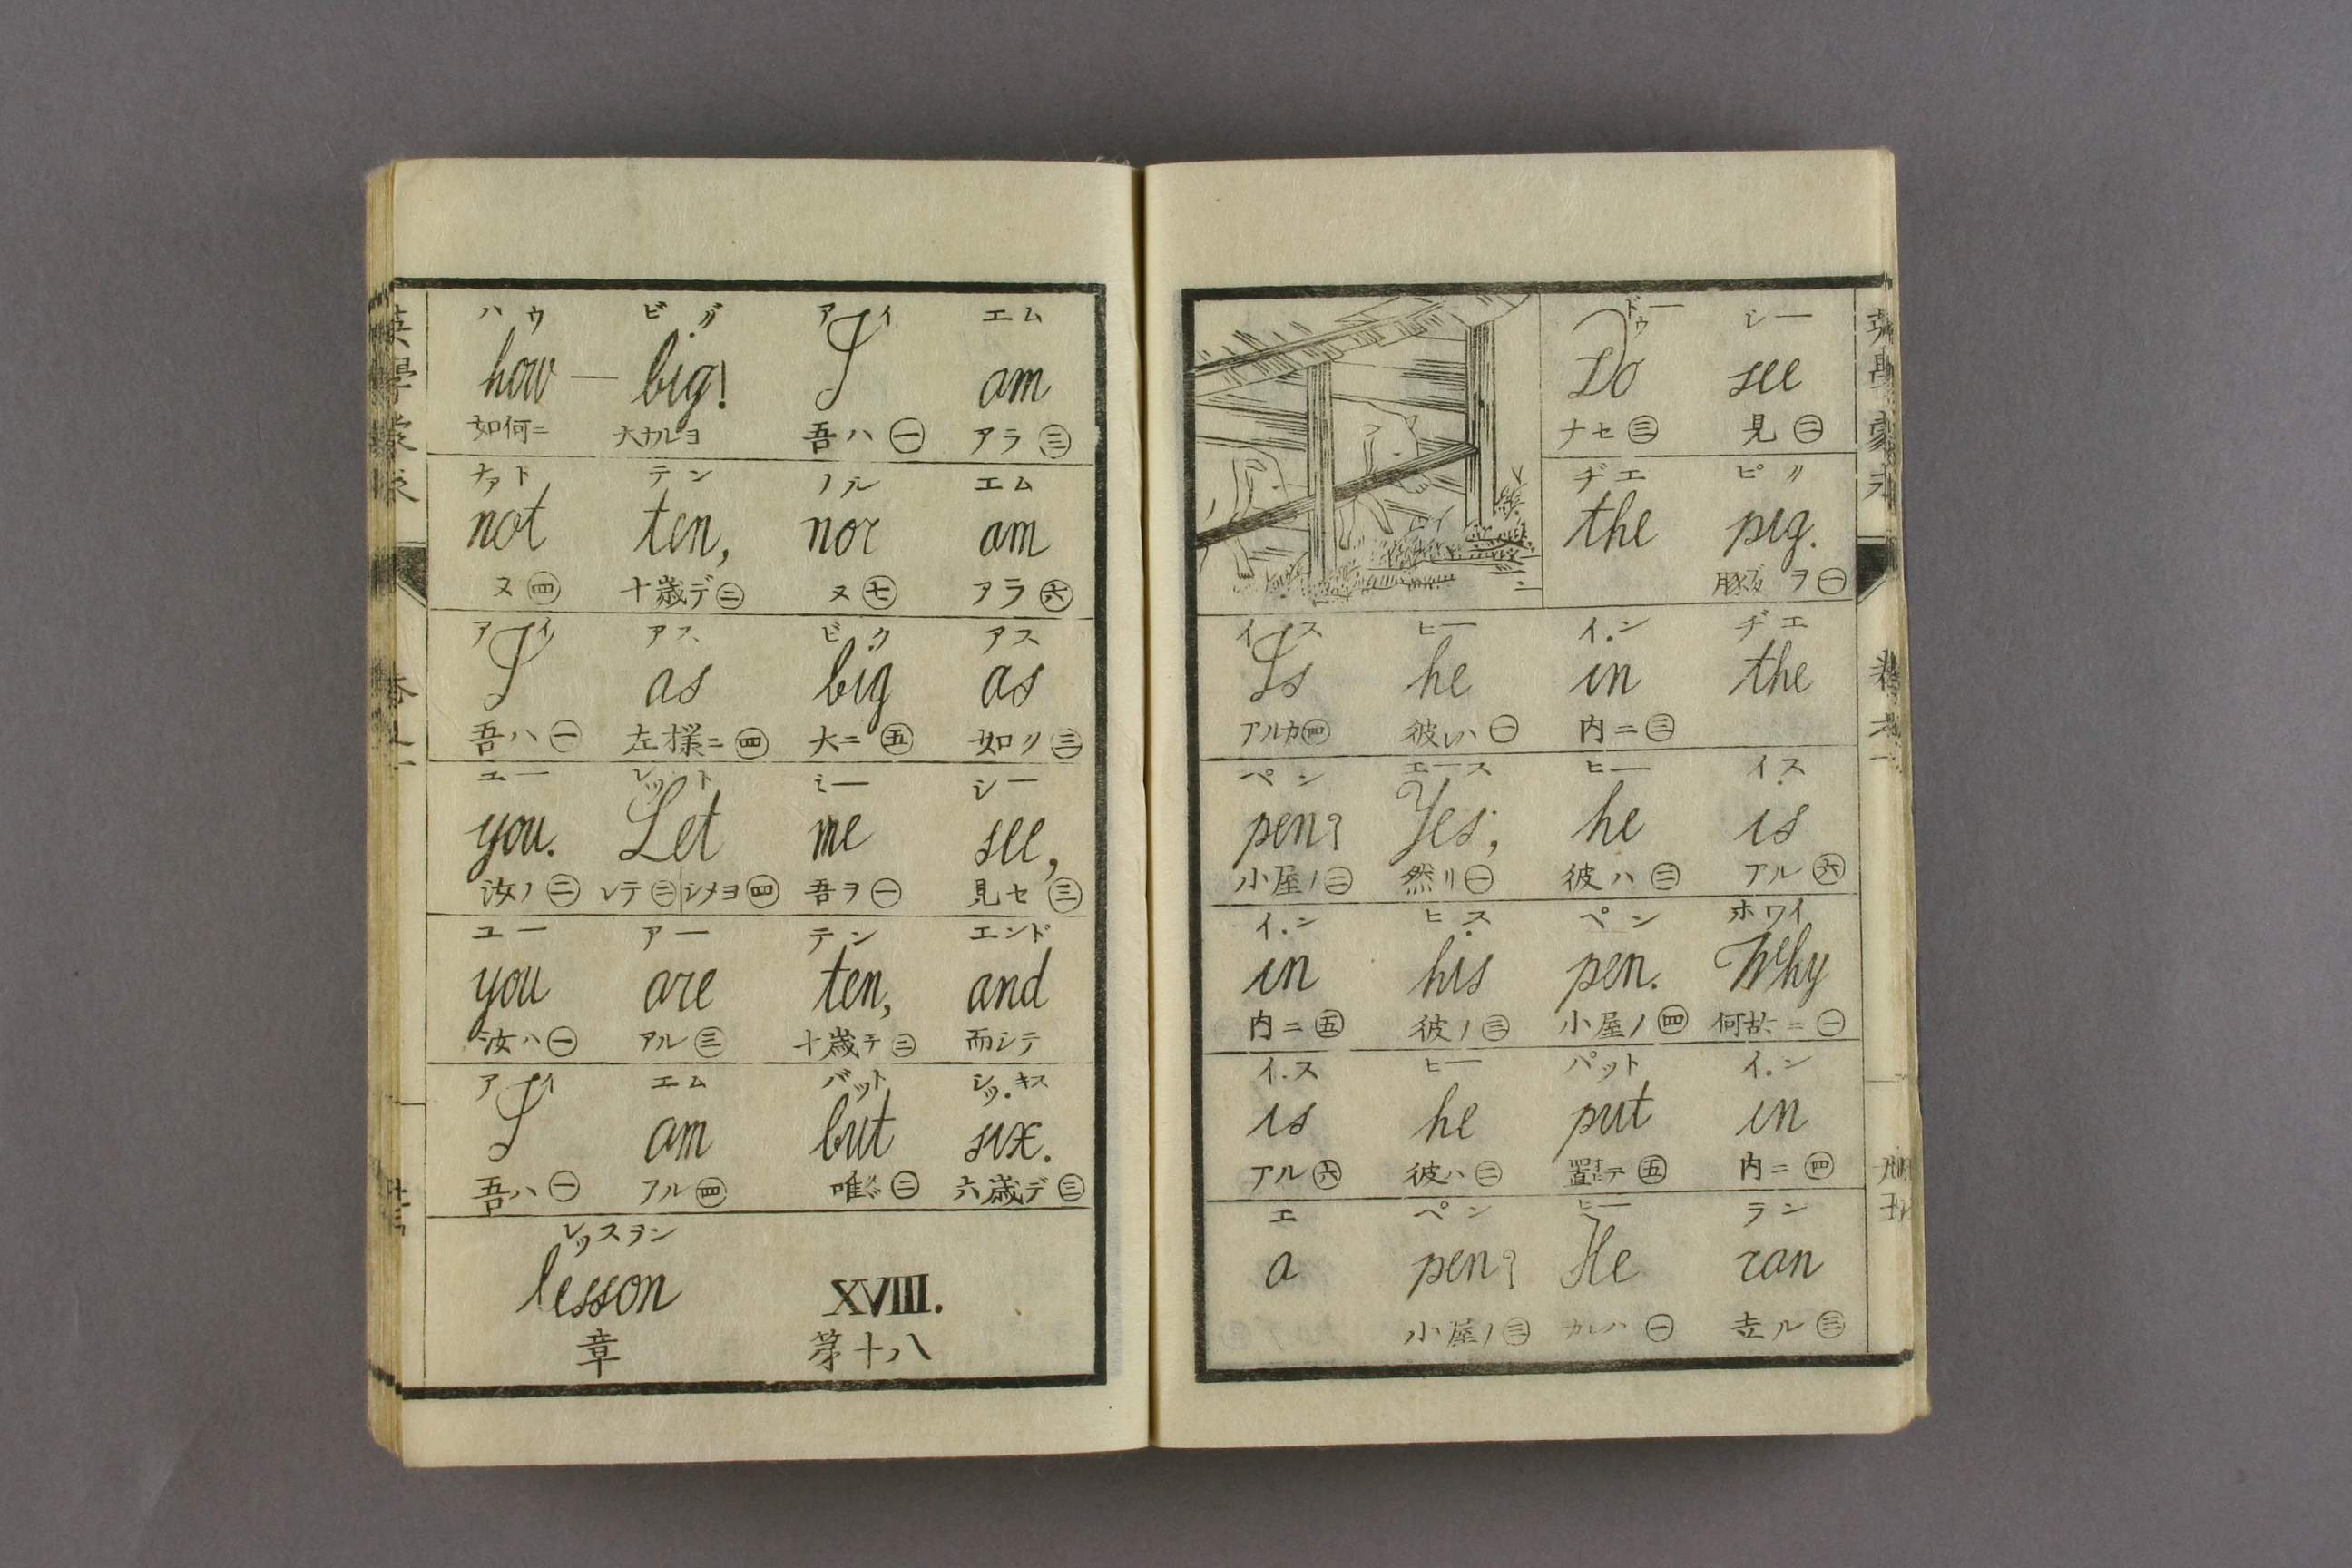 ハウ ビグ アイ エム
how — big! I am
如何ニ 大ナルヨ 吾ハ㊀ アラ㊂
ナァト テン ノル エム
not ten, nor am
ヌ㊃ 十歳デ㊁ ヌ㊆ アラ㊅
アイ アス ビク アス
I as big as
吾ハ㊀ 左様ニ㊃ 大ニ㊄ 如ク㊂
ユー レット ミー シー
you. Let me see,
汝ノ㊁ レテ㊁ シメヨ㊃ 吾ヲ㊀ 見セ㊂
ユー アー テン エンド
you are ten, and
汝ハ㊀ アル㊂ 十歳デ㊁ 而シテ
アイ エム バット シッキス
I am but six.
吾ハ㊀ アル㊃ 唯㊁ 六歳デ㊂
レッスラン
lesson XVIII.
章 第十八
ドゥー シー
Do see
ナセ㊂ 見㊁
ヂエ ピグ
the pig.
豚ヲ㊀
イス ヒー イン ヂエ
Is he in the
アルカ㊃ 彼レハ㊀ 内ニ㊂
ペン エース ヒー イス
pen? Yes; he is
小屋ノ㊁ 然リ㊀ 彼ハ㊁ アル㊅
イン ヒス ペン ホワイ
in his pen. Why
内ニ㊄ 彼ノ㊂ 小屋ノ㊃ 何故ニ㊀
イス ヒー パット イン
is he put in
アル㊅ 彼ハ㊁ 置テ㊄ 内ニ㊃
エ ペン ヒー ラン
a pen? He ran
小屋ノ㊂ カレハ㊀ 走ル㊂